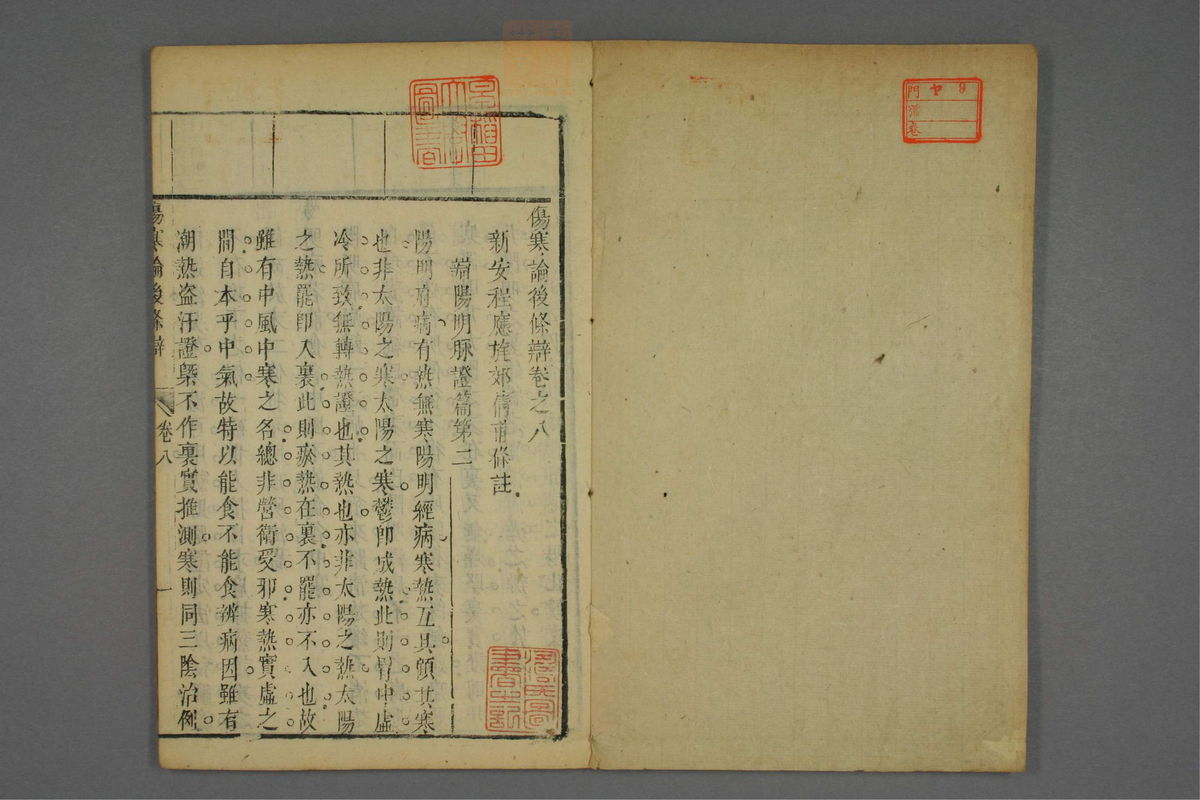 傷寒論後條辯卷之八
新安程應旄郊倩甫條註
辯陽明脉證篇第二
陽明府病有熱無寒陽明經病寒熱互具顧其寒
也非太陽之寒太陽之寒鬱卽成熱此則胃中虛
冷所致無轉熱證也其熱也亦非太陽之熱太陽
之熱罷卽入裏此則瘀熱在裏不罷亦不入也故
雖有中風中寒之名總非營衛受邪寒熱實虛之
間自本乎中氣故特以能食不能食辨病因雖有
潮熱盗汗證槩不作裏實推測寒則同三陰治例
傷寒論後條辯
卷八
一
早稲田大学圖書
門 ヤ 9
號
卷